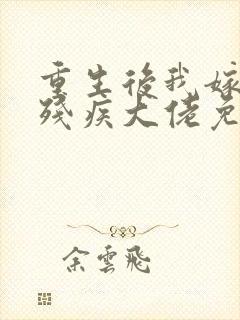 重生後我嫁
殘疾大佬免
余雲飛